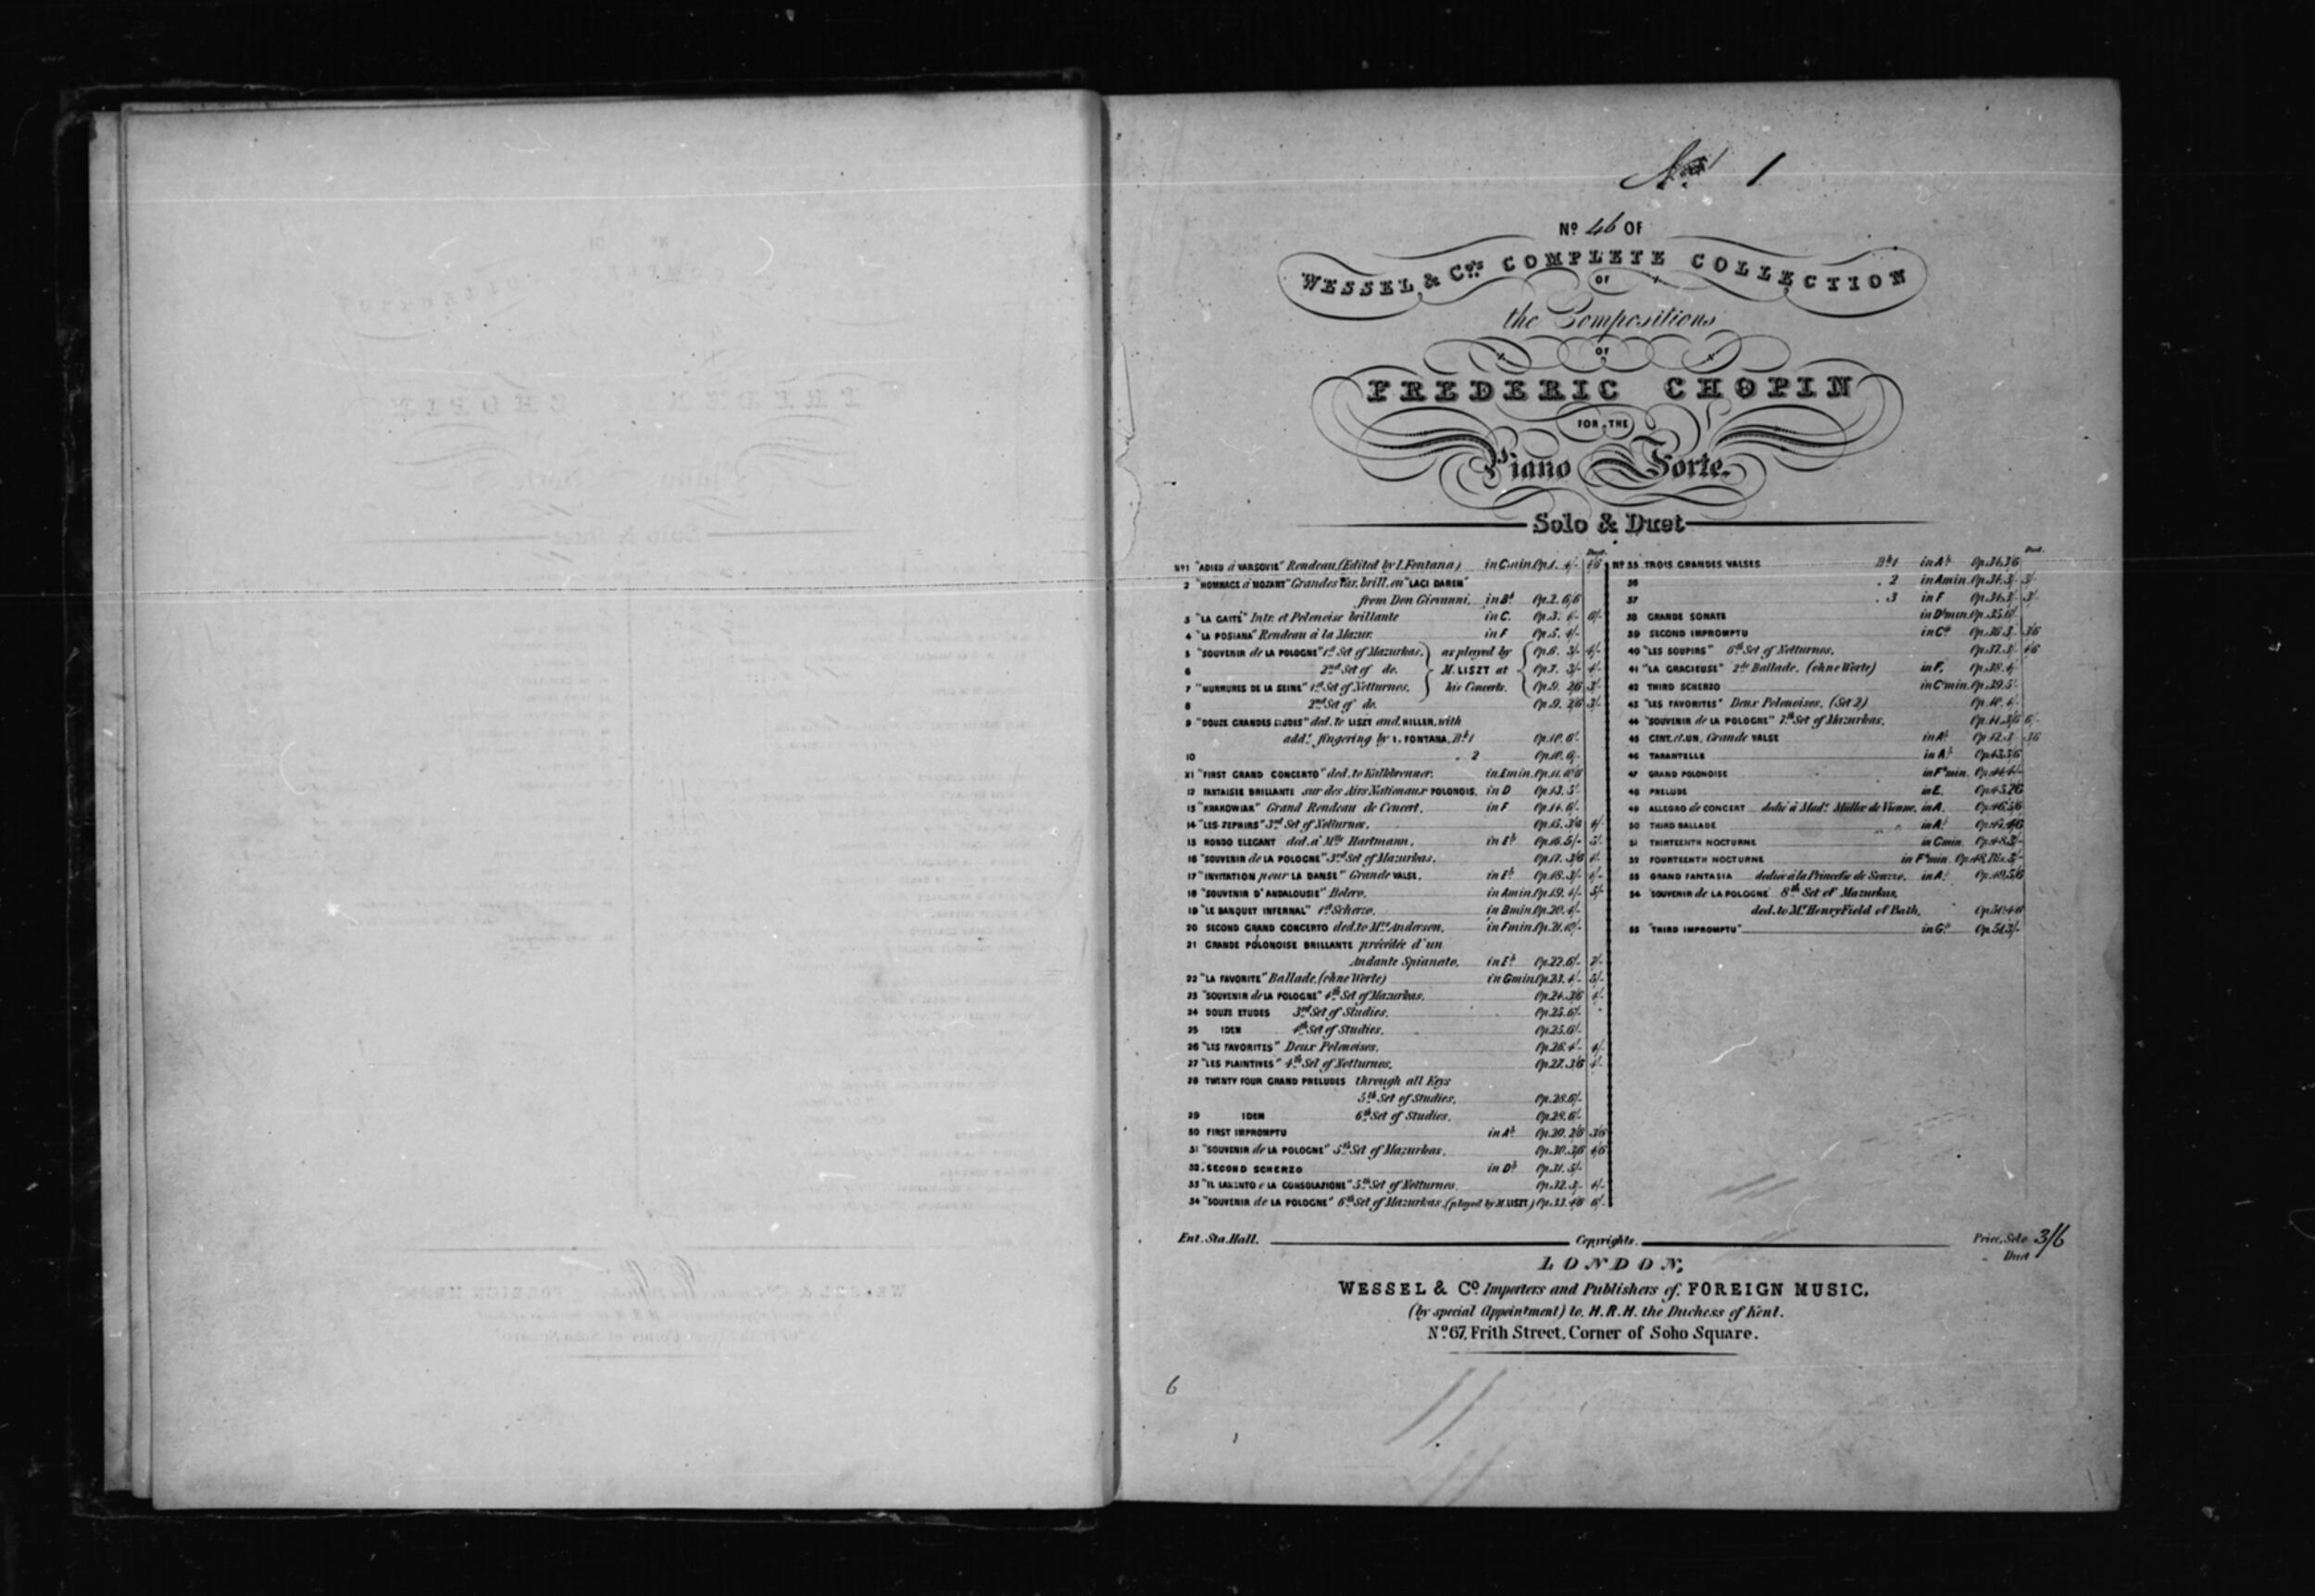 No. 1
No. 46 OF
WESSEL & Co's. COMPLETE COLLECTION
OF
the Compositions
OF
FREDERIC CHOPIN
FOR THE
Piano Forte.
Solo & Duet
Duet.
No. 1 "ADIEU à VARSOVIE" Rondeau, (Edited by I. Fontana) in C min. Op. 1. 4/-
2 "HOMMAGE à MOZART" Grandes Var. brill. on "LACI DAREM"
from Don Giovanni. in B♭ Op. 2. 6/6
3 "LA GAITÉ" Intr. et Polonoise brillante in C. Op. 3. 6/-
4 "LA POSIANA" Rondeau à la Mazur. in F Op. 5. 4/-
5 "SOUVENIR de LA POLOGNE" 1st Set of Mazurkas. as played by Op. 6. 3/- 4/-
6 2nd Set of do. M. LISZT at Op. 7. 3/- 4/-
7 "MURMURES DE LA SEINE" 1st Set of Notturnos. his Concerts. Op. 9. 2/6 3/-
8 2nd Set of do. Op. 9. 2/6 3/-
9 "DOUZE GRANDES ETUDES" ded. to LISZT and HILLER, with
addl. fingering by I. FONTANA. Bk 1 Op. 10. 6/-
10 " 2 Op. 10. 6/-
11 "FIRST GRAND CONCERTO" ded. to Kalkbrenner. in E min. Op. 11.
12 FANTAISIE BRILLANTE sur des Airs Nationaux POLONOIS. in D Op. 13. 5/-
13 "KRAKOWIAK" Grand Rondeau de Concert. in F Op. 14. 6/-
14 "LES ZEPHIRS" 3rd Set of Notturnos. Op. 15. 3/6 4/-
15 RONDO ELEGANT ded. à Mlle Hartmann. in E♭ Op. 16. 5/- 5/-
16 "SOUVENIR de LA POLOGNE" 3rd Set of Mazurkas. Op. 17. 3/6 4/-
17 "INVITATION pour LA DANSE" Grande VALSE. in E♭ Op. 18. 3/- 4/-
18 "SOUVENIR D'ANDALOUSIE" Bolero. in A min. Op. 19. 4/- 5/-
19 "LE BANQUET INFERNAL" 1st Scherzo. in B min. Op. 20. 4/-
20 SECOND GRAND CONCERTO ded. to Mrs Anderson. in F min. Op. 21. 10/-
21 GRANDE POLONOISE BRILLANTE précédée d'un
Andante Spianato. in E♭ Op. 22. 6/-
22 "LA FAVORITE" Ballade, (ohne Worte) in G min. Op. 23. 4/- 5/-
23 "SOUVENIR de LA POLOGNE" 4th Set of Mazurkas. Op. 24. 3/6 4/-
24 DOUZE ETUDES 3rd Set of Studies. Op. 25. 6/-
25 IDEM 4th Set of Studies. Op. 25. 6/-
26 "LES FAVORITES" Deux Polonoises. Op. 26. 4/- 4/-
27 "LES PLAINTIVES" 4th Set of Notturnos. Op. 27. 3/6 4/-
28 TWENTY FOUR GRAND PRELUDES through all Keys
5th Set of Studies. Op. 28. 6/-
29 IDEM 6th Set of Studies. Op. 28. 6/-
30 FIRST IMPROMPTU in A♭ Op. 29. 2/6 3/6
31 "SOUVENIR de LA POLOGNE" 5th Set of Mazurkas. Op. 30. 3/6 4/6
32 SECOND SCHERZO in D♭ Op. 31. 5/-
33 "IL LAMENTO e LA CONSOLAZIONE" 5th Set of Notturnos. Op. 32. 3/- 4/-
34 "SOUVENIR de LA POLOGNE" 6th Set of Mazurkas. (played by M. LISZT.) Op. 33. 4/6 6/-
Duet.
No. 35 TROIS GRANDES VALSES Bk 1 in A♭ Op. 34. 3/6
36 " 2 in A min. Op. 34. 3/- 3/-
37 " 3 in F Op. 34. 3/- 3/-
38 GRANDE SONATE in D♭ min. Op. 35.
39 SECOND IMPROMPTU in C♯ Op. 36. 3/- 3/6
40 "LES SOUPIRS" 6th Set of Notturnos. Op. 37. 3/- 4/6
41 "LA GRACIEUSE" 2de Ballade. (ohne Worte) in F. Op. 38. 4/-
42 THIRD SCHERZO in C♯ min. Op. 39. 5/-
43 "LES FAVORITES" Deux Polonoises. (Set 2) Op. 40. 4/-
44 "SOUVENIR de LA POLOGNE" 7th Set of Mazurkas. Op. 41. 3/6 6/-
45 CENT-et-UN, Grande VALSE in A♭ Op. 42. 3/- 3/6
46 TARANTELLE in A♭ Op. 43. 3/6
47 GRAND POLONOISE in F♯ min. Op. 44. 4/-
48 PRELUDE in E. Op. 45. 2/6
49 ALLEGRO de CONCERT dedié à Made. Müller de Vienne. in A. Op. 46. 5/6
50 THIRD BALLADE in A♭ Op. 47. 4/6
51 THIRTEENTH NOCTURNE in C min. Op. 48. 3/-
52 FOURTEENTH NOCTURNE in F♯ min. Op. 48. Bis. 3/-
53 GRAND FANTASIA dedié à la Princesse de Souzzo. in A♭ Op. 49. 5/6
54 "SOUVENIR de LA POLOGNE" 8th Set of Mazurkas,
ded. to Mr. Henry Field of Bath. Op. 50. 4/6
55 "THIRD IMPROMPTU" in G♭ Op. 51. 3/-
Ent. Sta. Hall. Copyrights. Price, Solo 3/6
" Duet
LONDON,
WESSEL & Co. Importers and Publishers of FOREIGN MUSIC.
(by special Appointment) to H.R.H. the Duchess of Kent.
No. 67, Frith Street, Corner of Soho Square.
6